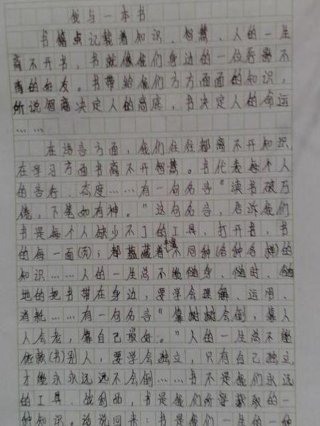 我与一本书
书籍点记载着知识、智慧、人的一生
离不开书，书就像我们身边的一位看离不
的的好友。书带给我们方方面面的知识。
所说细离决定人的高度，书决定人的命运
……
在语言方面，我们往往都离不开知识
在学习方面书离不开智慧。书代表每个人
的言行、态度……有一句名言"读书破万
卷，下笔如有神。"这句名言，告诉我们
书是每个人缺少不了的工具，打开书，书
的每一面(页)，都蕴藏着不同种(各种各样)的
知识……人的一生总不能随身、随时、随
地的把书带在身边，要学会理解、运用、
消耗……有一句名言。"靠山山会倒，靠人
人会老，靠自己最好。"人的一生总不能
依靠(书)别人，要学会独立，只有自己独立
才能永永远远不会倒……书不是我们永远
的工具，做到面，书是我们所要最求的一
种知识。话说回来：书是我们一生的一